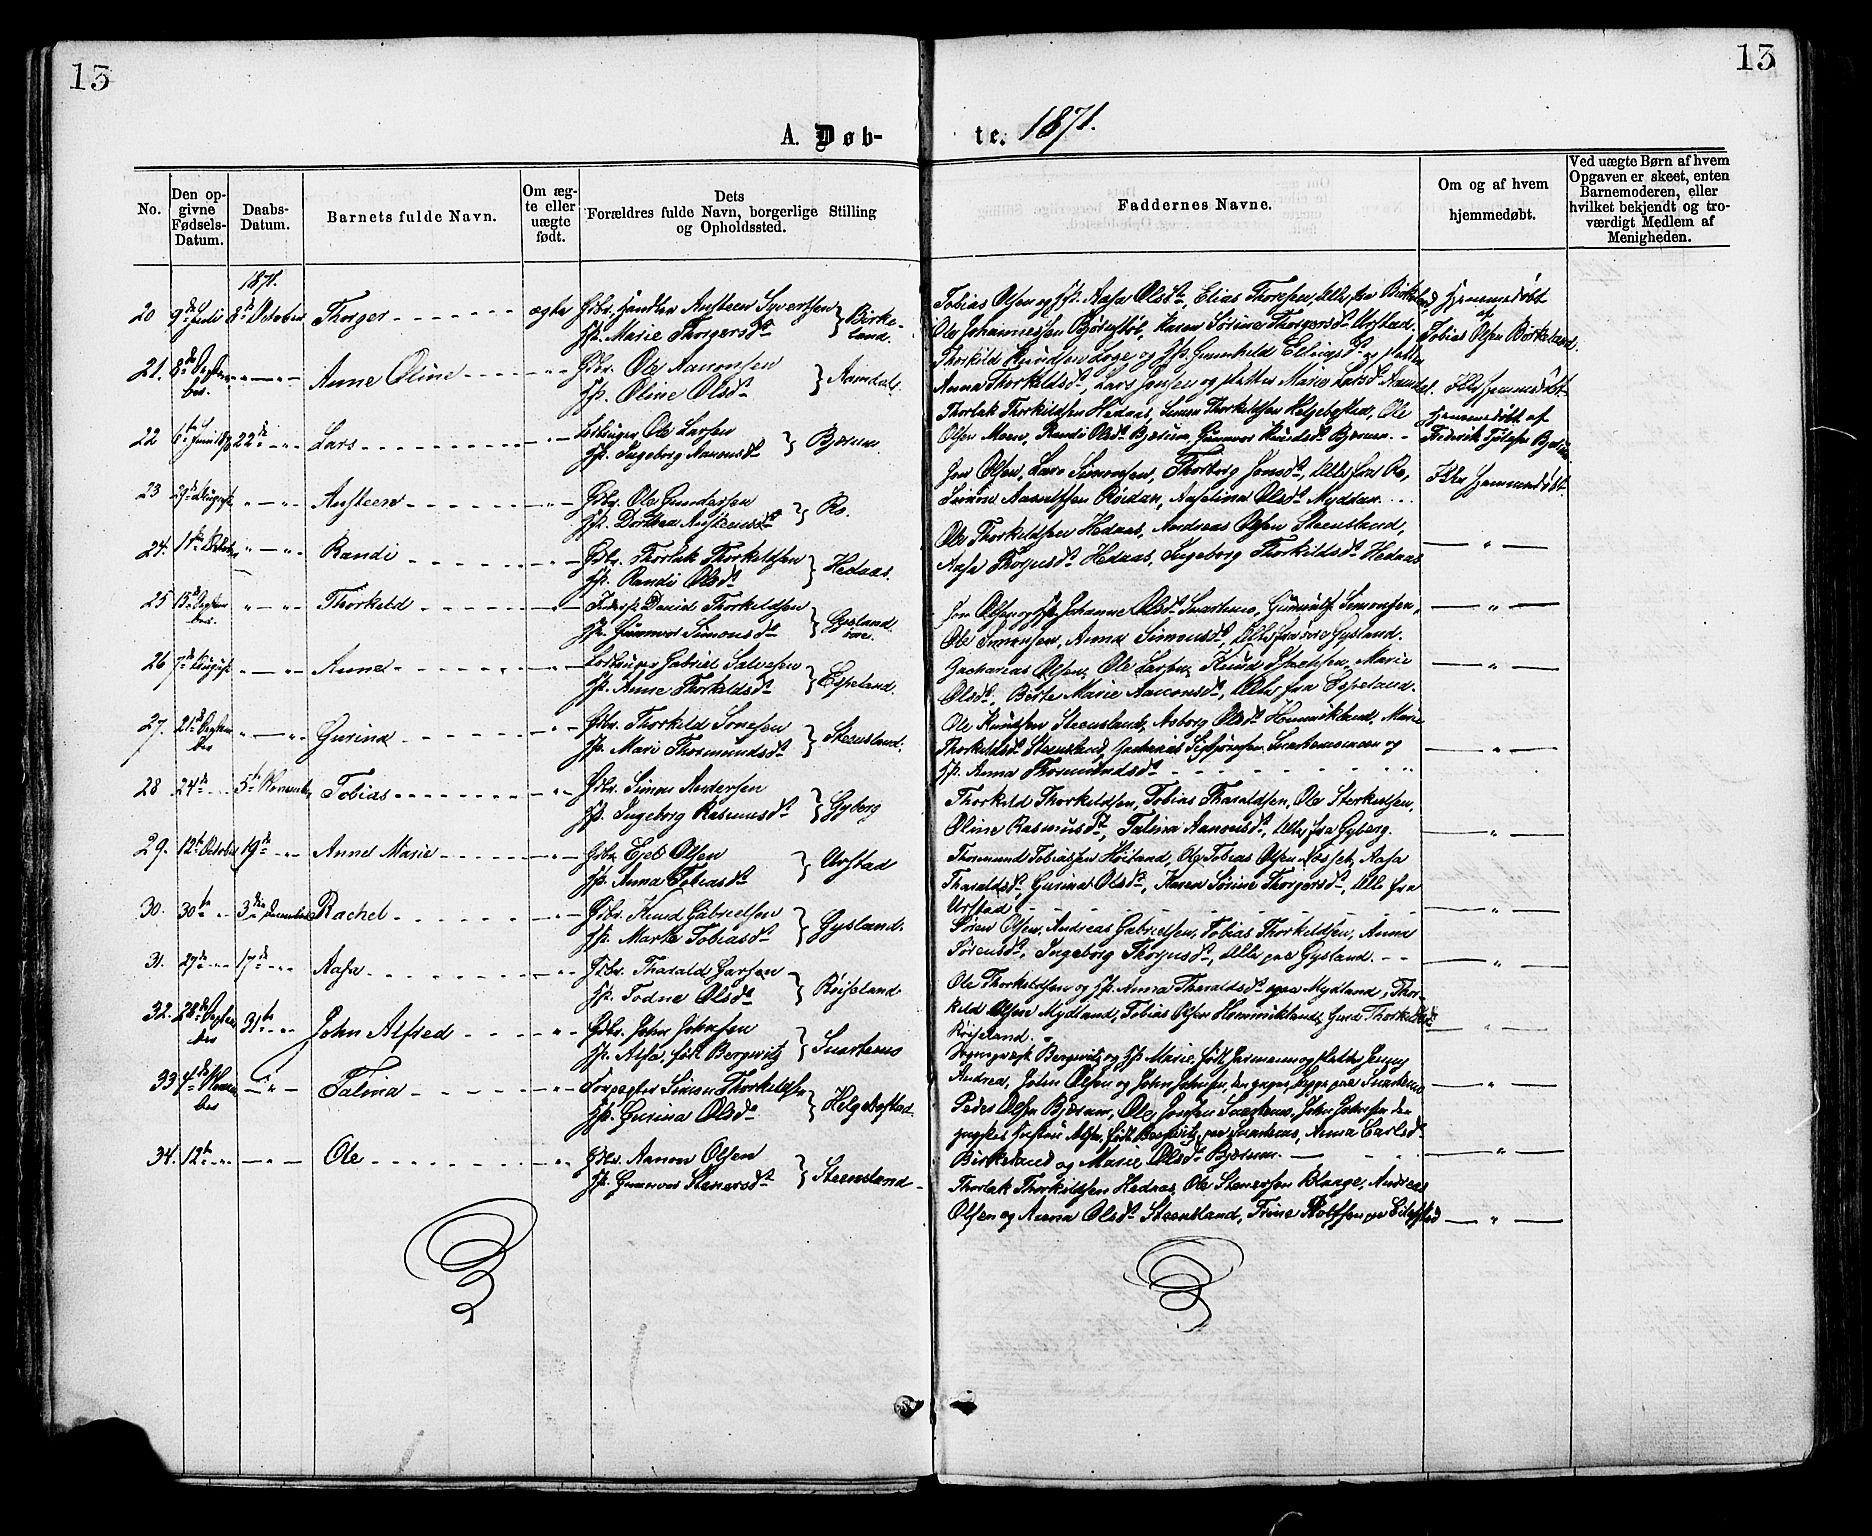 13
13
A. Døb-
te. 1871.
No.
Den op-
givne
Fødsels-
Datum.
Daabs-
Datum.
Barnets fulde Navn.
Om æg-
te eller
uægte
født.
Dets
Forældres fulde Navn, borgerlige Stilling
og Opholdssted.
Faddernes Navne.
Om og af hvem
hjemmedøbt.
Ved uægte Børn af hvem
Opgaven er skeet, enten
Barnemoderen, eller
hvilket bekjendt og tro-
værdigt Medlem af
Menigheden.
1871.
20 9de Juli 8de October Thorger ægte Gbr. Handler Austeen Syvertsen
Hst. Marie Thorgersdt. Birke-
land.
Tobias Olsen og Hst. Aasa Olsdt., Elias Thoresen, Alle fra Birkeland,
Ole Johannessen, Karen Sørine Thorgersdt. Urstad.
Hjemmedøbt
af
Tobias Olsen Birkeland.
21. 8de Septem-
ber Anne Oline Gbr. Ole Aanonsen
Hst. Oline Olsdt. Aamdal.
Thorkild Knudsen Løge og Hst. Gunnhild
Anna Thorkildsdt., Lars Jonsen og Marie Larsdt. Aamdal.
Ikke Hjemmedøbt
22 6te Juni 22de Lars Ole Larsen
Hst. Ingeborg Aanonsdt. Bjærum.
Thorlak Thorkildsen Hedaas, Simon Thorkildsen Helgebostad, Ole
Olsen Moen, Randi Olsdt. Bjærum, Gunnvor Knudsdt. Bjærum.
Hjemmedøbt af
Frederik
23 29de August Austeen Gbr. Ole Gundersen
Hst. Dorthea Austeensdt. Ro.
Jon Olsen, Lars Simonsen, Thorborg Jonsdt., Alle fra Ro,
Simon Røidan, Olsdt. Mydtan.
Ikke Hjemmedøbt
24. 11te October Randi Gbr. Thorlak Thorkildsen
Hst. Randi Olsdt. Hedaas.
Ole Thorkildsen Hedaas, Andreas Olsen Steensland,
Aasa Hedaas, Ingeborg Thorkildsdt. Hedaas
25 15de Septem-
ber Thorkild Daniel Thorkildsen
Hst. Gunnvor Simonsdt. Gysland
Jon Olsen og Hst. Johanne Olsdt. Svartemo, Simonsen,
Ole Simonsen, Anna Simonsdt., Alle fra Gysland.
26 7de August Anne Gabriel Salvesen
Hst. Anne Thorkildsdt. Espeland.
Zacharias Olsen, Ole Larsen, Knud, Marie
Olsdt., Børte Marie Aanonsdt., Alle fra Espeland.
27. 21de Septem-
ber Gurina Gbr. Thorkild Tonesen
Hst. Mari Thormundsdt. Steensland.
Ole Knudsen Steensland, Asborg Olsdt. Homrikland, Marie
Thorkildsdt. Steensland, Zacharias Svartemomoen og
Hst. Anna Thormundsdt.
28 24de 5te November Tobias Gbr. Simon Andersen
Hst. Ingeborg Rasmusdt. Gyberg
Thorkild Thorkildsen, Tobias Tharaldsen, Ole Sterkudsen,
Oline Rasmusdt., Talina Aanonsdt., Alle fra Gyberg.
29. 12te October 19de Anne Marie Gbr. Ejel Olsen
Hst. Anna Tobiasdt. Urstad
Thormund Tobiassen Høiland, Ole Tobias Olsen Nesset, Aasa
Tharaldsdt., Gurina Olsdt., Karen Sørine Thorgersdt., Alle fra
Urstad
30. 30te 3die December Rachel Gbr. Knud Gabrielsen
Hst. Marte Tobiasdt. Gysland.
Søren Olsen, Andreas Gabrielsen, Tobias Thorkildsen, Anna
Sørensdt., Ingeborg Thorjusdt., Alle paa Gysland.
31. 27de 17de Aasa Gbr. Tharald Larsen
Hst. Todne Olsdt. Røiseland
Ole Thorkildsen og Hst. Anna Tharaldsdt. paa Mydland, Thor-
kild Olsen Mydland, Tobias Olsen Homrikland, Thorkildsdt.
Røiseland.
32. 28de Septem-
ber 31te John Alfred Gbr. John Johnsen
Hst. Alfa, født Bergwitz Svartemo
Sognepræst Bergwitz og Hst. Marie, født Hermann og Jenny
Andrea, John Olsen og John Johnsen, den yngre, begge paa Svartemo
33 4de Novem-
ber Talina Simon Thorkildsen
Hst. Gurina Olsdt. Helgebostad.
Peder Olsen Bjærum, Ole Jonsen Svartemo, John Johnsen den
yngres Hustru Alfa, født Bergwitz, paa Svartemo, Anna Carlsdt.
Birkeland og Marie Olsdt. Bjærum.
34. 12te Ole Gbr. Aanon Olsen
Hst. Gunnvor Stenersdt. Steensland
Thorlak Thorkildsen Hedaas, Ole Stenersen Blaage, Andreas
Olsen og Anna Olsdt. Steensland, Trine paa Eilefstad